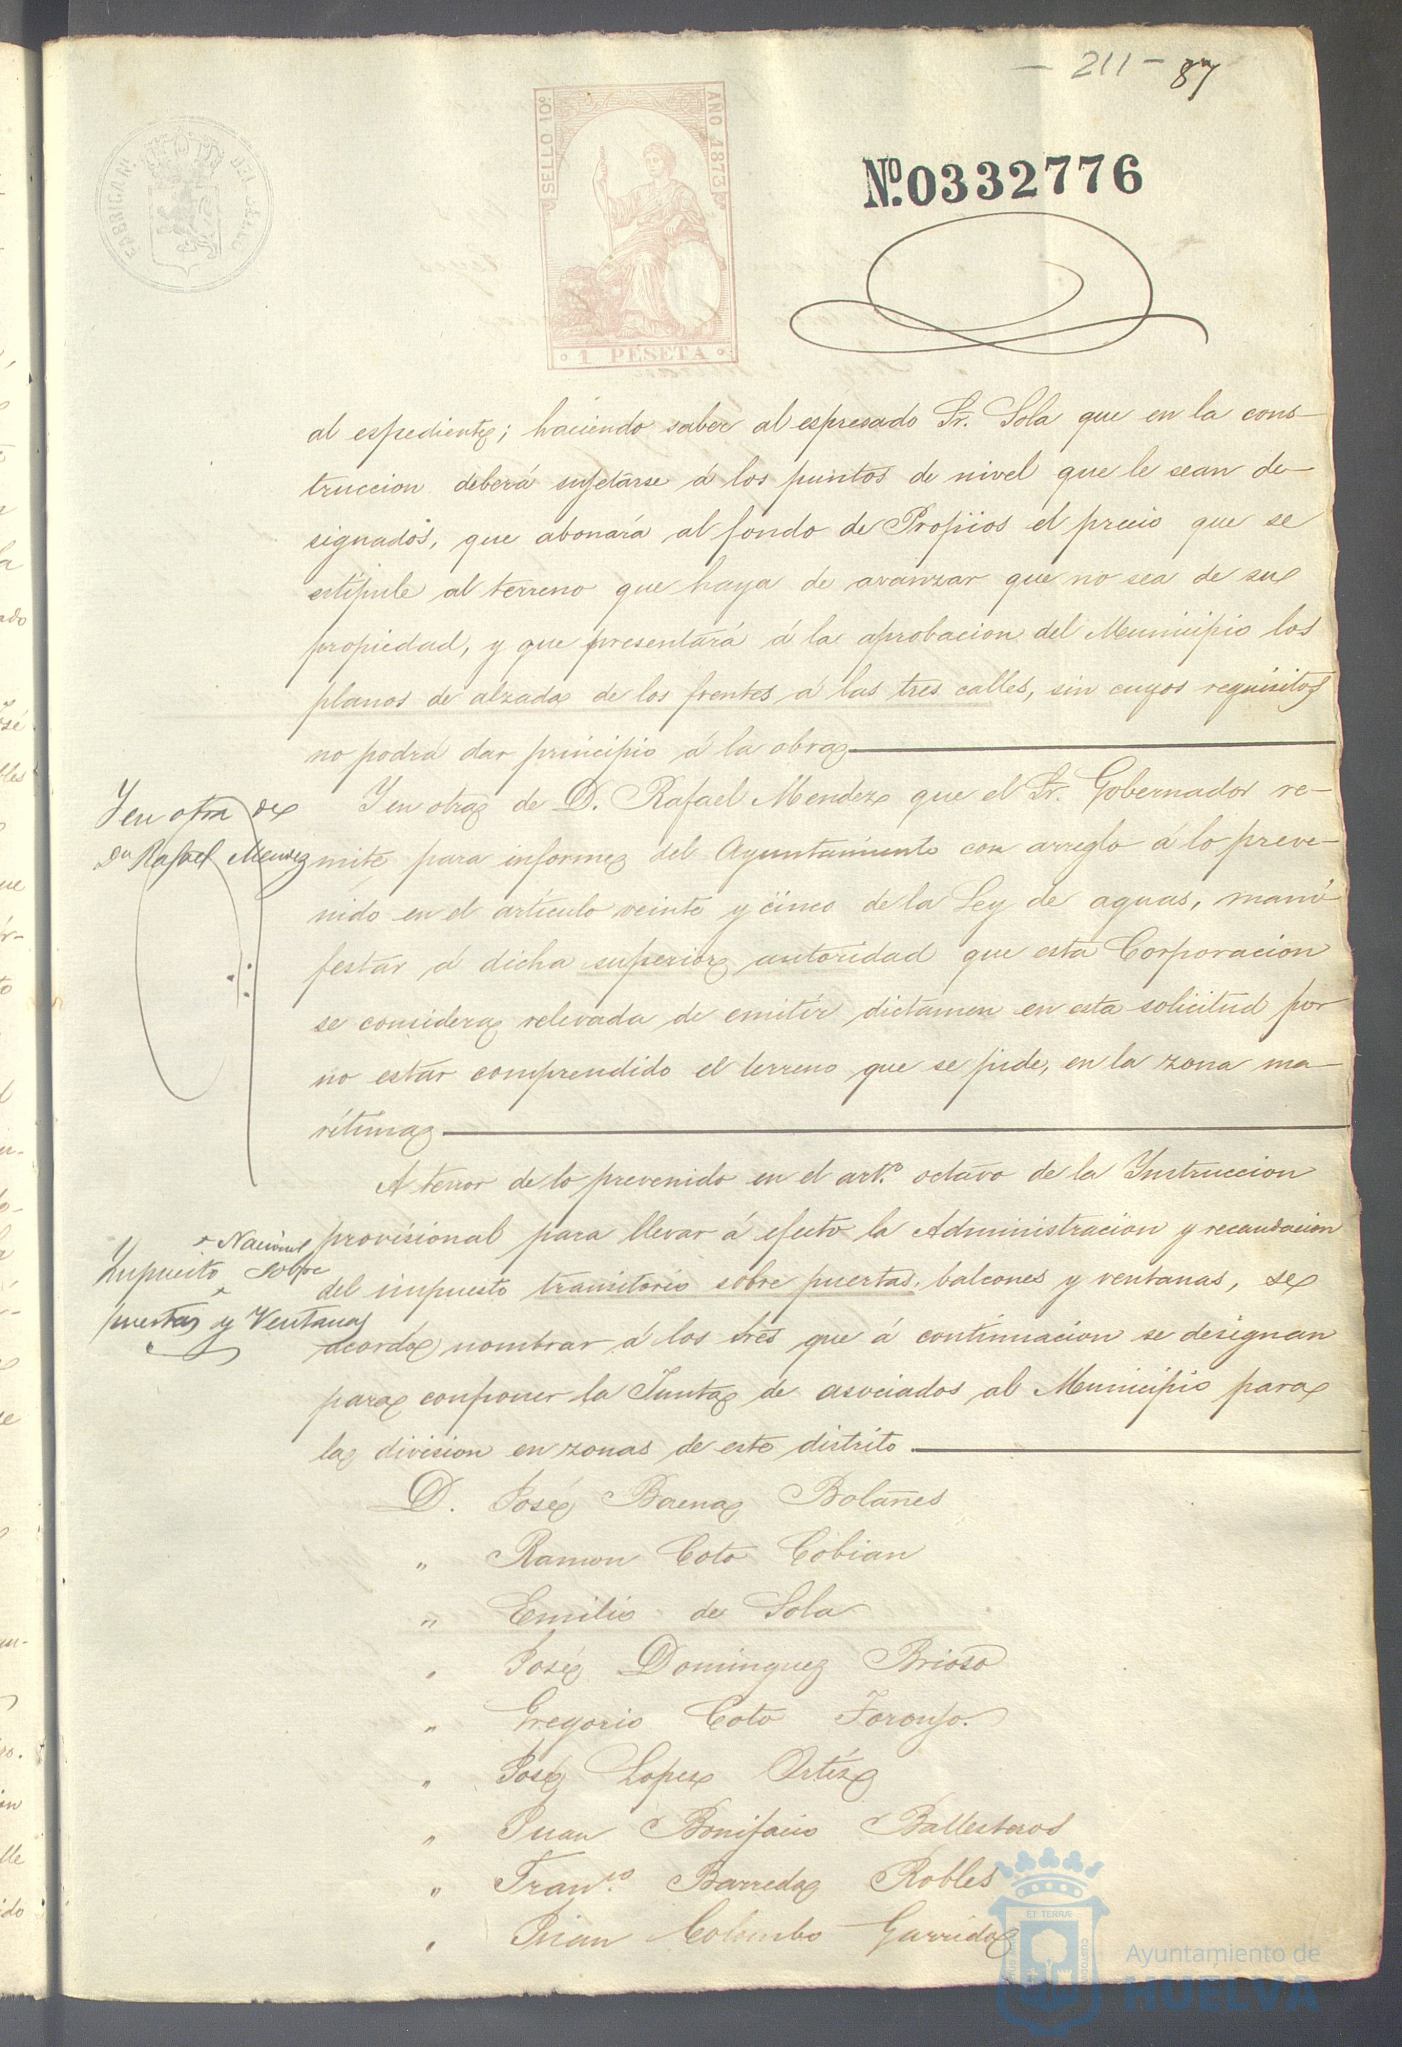 - 211 - 87
FABRICA N. DEL SELLO
SELLO 10º
AÑO 1873
1 PESETA
Nº. 0332776
al espediente; haciendo saber al espresado Sr. Sola que en la cons-
truccion deberá sujetarse á los puntos de nivel que le sean de-
signados, que abonará al fondo de Propios el precio que se
estipule al terreno que haya de avanzar que no sea de su
propiedad, y que presentará á la aprobacion del Municipio los
planos de alzada de los frentes á las tres calles, sin cuyos requisitos
no podrá dar principio á la obra
Y en otra de
Dn Rafael Mendez
Y en otra de D. Rafael Mendez que el Sr. Gobernador re-
mite para informe del Ayuntamiento con arreglo á lo preve-
nido en el artículo veinte y cinco de la Ley de aguas, mani-
festar á dicha superior autoridad que esta Corporacion
se considera relevada de emitir dictamen en esta solicitud por
no estar comprendido el terreno que se pide, en la zona ma-
rítima
Nacional
Impuesto sobre
puertas y Ventanas
A tenor de lo prevenido en el artº. octavo de la Instruccion
provisional para llevar á efecto la Administracion y recaudacion
del impuesto transitorio sobre puertas, balcones y ventanas, se
acordó nombrar á los tres que á continuacion se designan
para componer la Junta de asociados al Municipio para
la division en zonas de este distrito
D. José Baena Bolaños
" Ramon Coto Cobian
" Emilio de Sola
" José Dominguez Brioso
" Gregorio Coto Toronjo.
" José Lopez Ortíz
" Juan Bonifacio Ballesteros
" Franco. Barreda Robles
" Juan Colombo Garrido
Ayuntamiento de
HUELVA